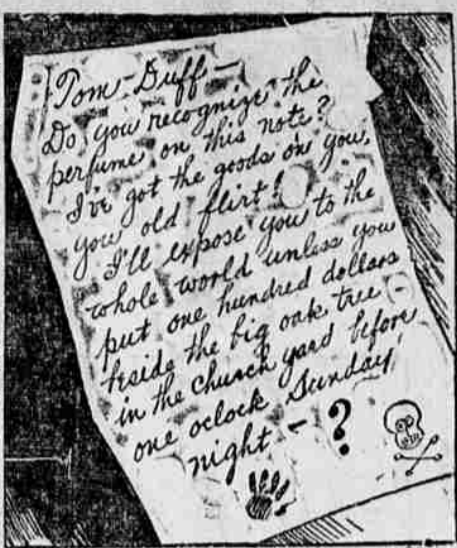 Tom-Duff-
Do you recognize the
perfume on this note?
I've got the goods on you,
you old flirt!
I'll expose you to the
whole world unless you
put one hundred dollars
beside the big oak tree
in the church yard before
one oclock Sunday
night - ?